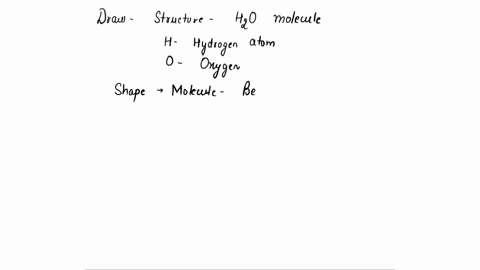 Draw - Structure - H₂O molecule
H - Hydrogen atom
O - Oxygen
Shape → Molecule - Be